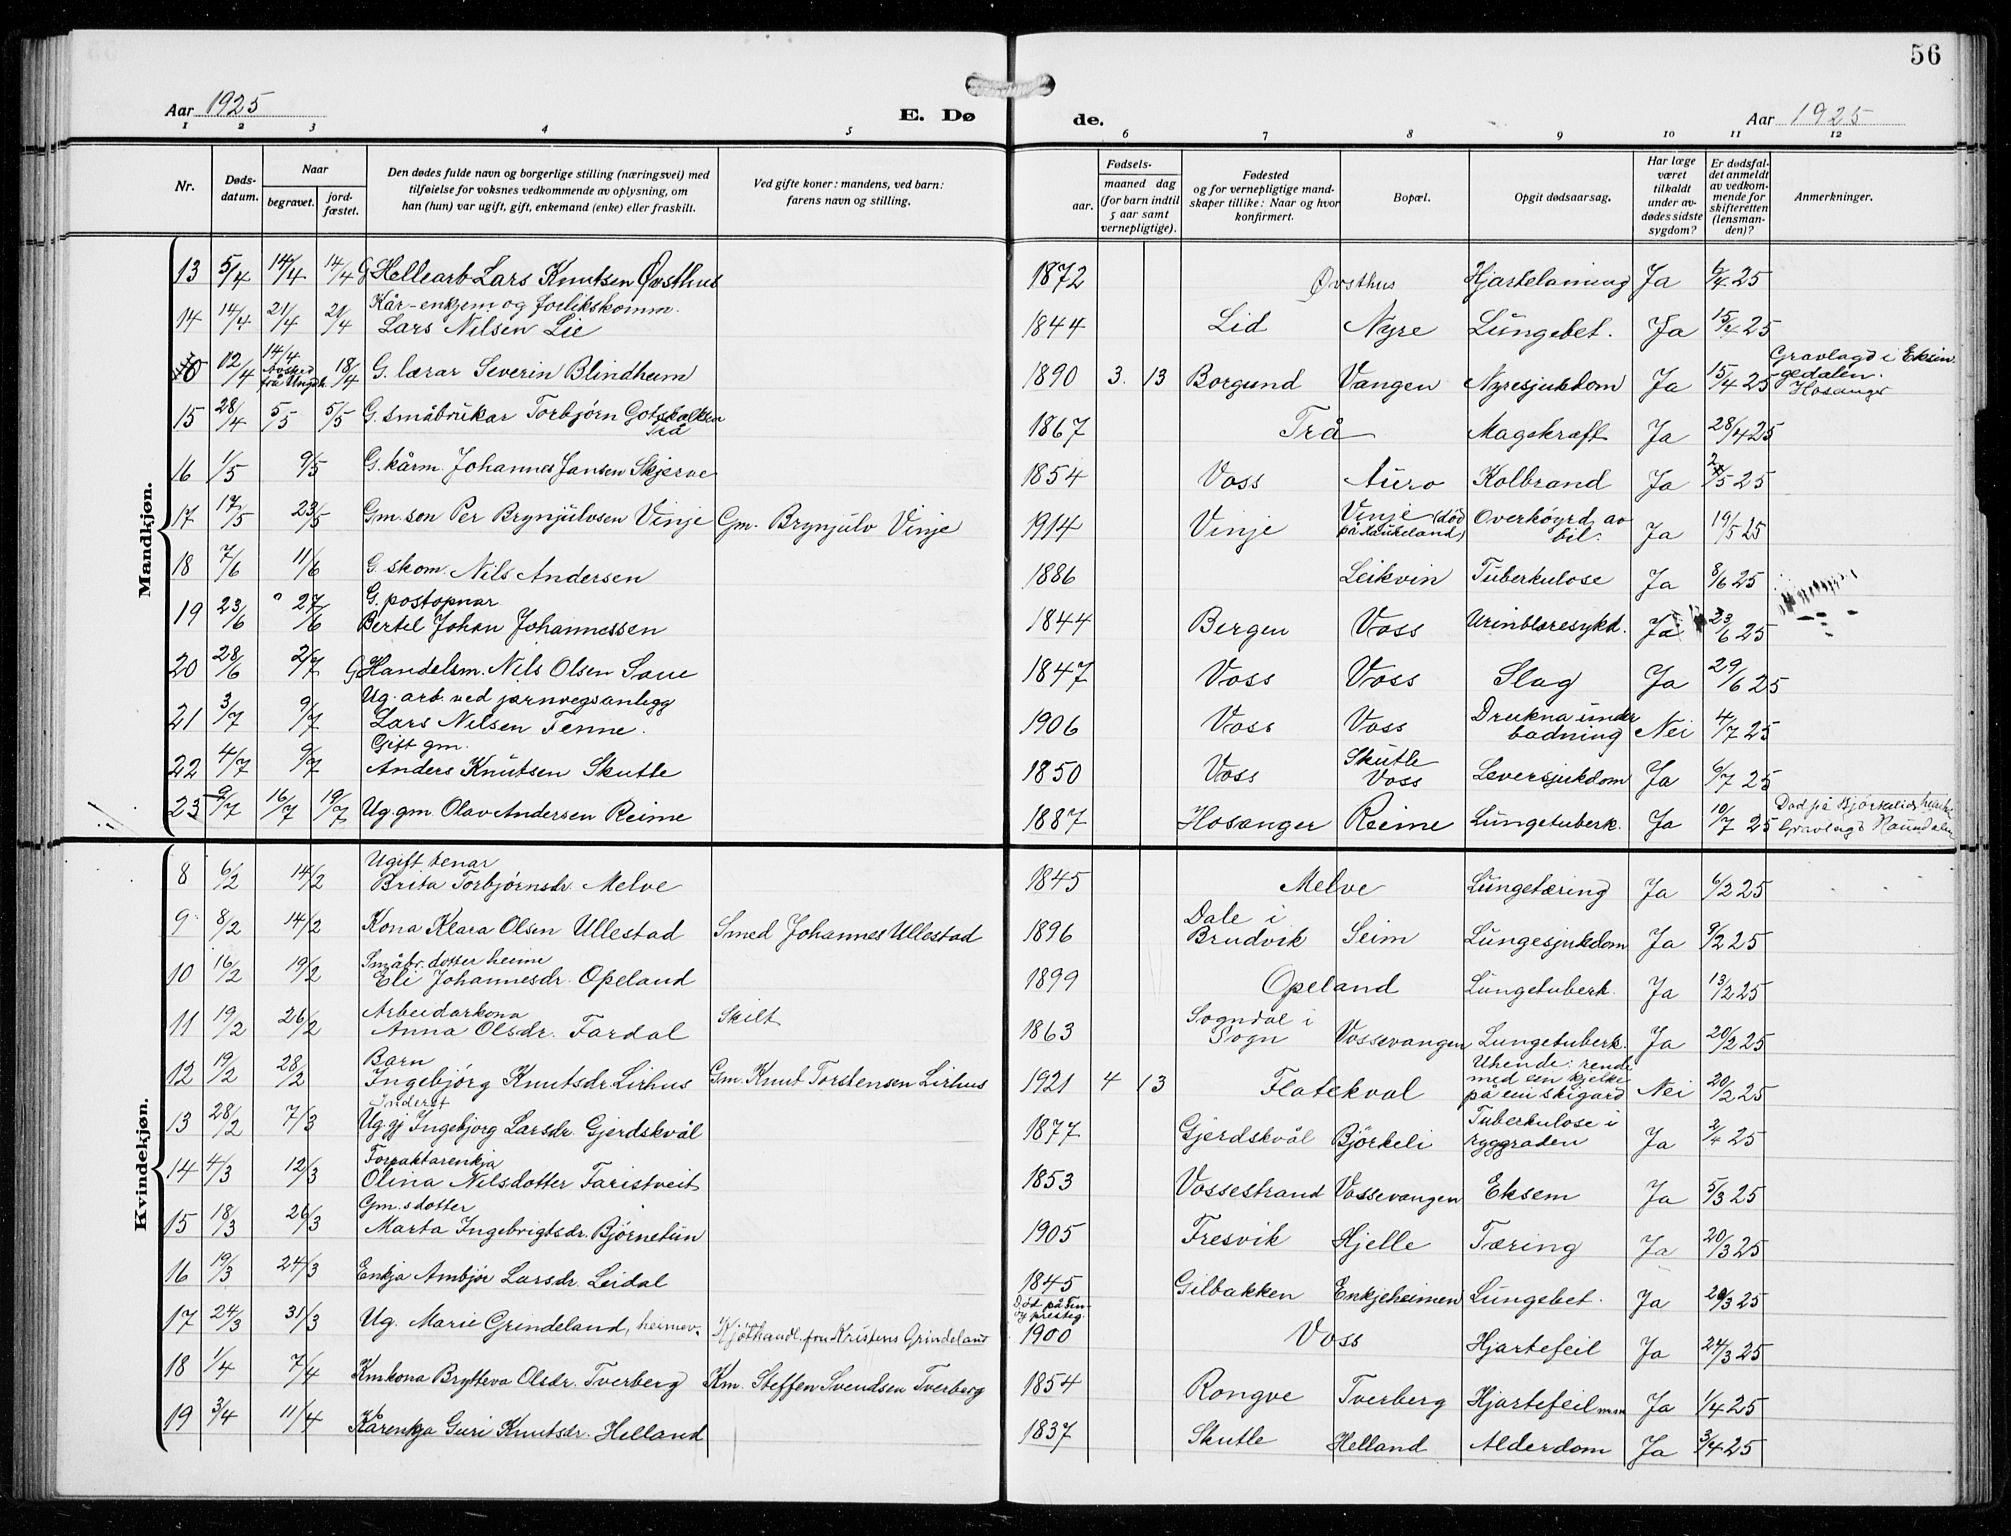 56
Aar 1925
E. Dø
de.
Aar 1925
1 2 3 4 5 6 7 8 9 10 11 12
Nr.
Døds-
datum.
Naar
begravet.
jord-
fæstet.
Den dødes fulde navn og borgerlige stilling (næringsvei) med
tilføielse for voksnes vedkommende av oplysning, om
han (hun) var ugift, gift, enkemand (enke) eller fraskilt.
Ved gifte koner: mandens, ved barn:
farens navn og stilling.
Fødsels-
aar.
maaned dag
(for barn indtil
5 aar samt
vernepligtige).
Fødested
og for vernepligtige mand-
skaper tillike: Naar og hvor
konfirmert.
Bopæl.
Opgit dødsaarsag.
Har læge
været
tilkaldt
under av-
dødes sidste
sygdom?
Er dødsfal-
det anmeldt
av vedkom-
mende for
skifteretten
(lensman-
den)?
Anmerkninger.
Mandkjøn.
13 5/4 14/4 14/4 G Hellearb Lars Knutsen Øvsthus 1872 Øvsthus Hjartelaming Ja 6/4 25
Kår-enkjem og forlikskomm.
14 14/4 21/4 21/4 Lars Nilsen Lie 1844 Lid Nyre Lungebet. Ja 15/4 25
12/4 14/4 18/4 G. lærar Severin Blindheim 1890 3. 13 Borgund Vangen Nyresjukdom Ja 15/4 25 Gravlagd i Eksin
gedalen.
Hosanger
15 28/4 5/5 5/5 G. småbrukar Torbjørn Gotskalksen
Trå 1867 Trå Magekræft Ja 28/4 25
16 1/5 9/5 G. kårm. Johannes Jansen Skjerve 1854 Voss Auro Kolbrand Ja 2/5 25
17 17/5 23/5 Gm. son Per Brynjulvsen Vinje Gm. Brynjulv Vinje 1914 Vinje Vinje (død
på Haukeland) Overkøyrd av
bil. Ja 19/5 25
18 7/6 11/6 G. skom. Nils Andersen 1886 Leikvin Tuberkulose Ja 8/6 25
G. postopnar
19 23/6 27/6 Bertel Johan Johannessen 1844 Bergen Voss Urinblæresykd. Ja 23/6 25
20 28/6 2/7 G Handelsm. Nils Olsen Saue 1847 Voss Voss Slag Ja 29/6 25
Ug. arb. ved jarnvegsanlegg
21 3/7 9/7 Lars Nilsen Tenne. 1906 Voss Voss Drukna under
badning Nei 4/7 25
Gift gm.
22 4/7 9/7 Anders Knutsen Skutle 1850 Voss Skutle
Voss Leversjukdom Ja 6/7 25
23 9/7 16/7 19/7 Ug. gm. Olav Andersen Reime 1887 Hosanger Reime Lungetuberk. Ja 10/7 25 Død på
Gravlagd
Kvindekjøn.
Ugift tenar
8 6/2 14/2 Brita Torbjørnsdr. Melve 1845 Melve Lungetæring Ja 6/2 25
9 8/2 14/2 Kona Klara Olsen Ullestad Smed Johannes Ullestad 1896 Dale i
Brudvik Seim Lungesjukdom Ja 9/2 25
Småbr. dotter heime
10 16/2 19/2 Eli Johannesdr. Opeland 1899 Opeland Lungetuberk. Ja 13/2 25
Arbeidarkona
11 19/2 26/2 Anna Olsdr. Fardal Skilt 1863 Sogndal i
Sogn Vossevangen Lungetuberk. Ja 20/2 25
Barn
12 19/2 28/2 Ingebjörg Knutsdr. Lirhus Gm. Knut Torstensen Lirhus 1921 4 13 Flatekval Uhende: rende
med ein kjelke
på ein skigard Nei 20/2 25
Inderst
13 28/2 7/3 Ug. gj Ingebjorg Larsdr. Gjerdskvål 1877 Gjerdskvål Björkeli Tuberkulose i
ryggraden Ja 2/4 25
Forpaktarenkja
14 4/3 12/3 Olina Nilsdotter Faristveit 1853 Vossestrand Vossevangen Eksem Ja 5/3 25
Gm.sdotter
15 18/3 26/3 Marta Ingebrigtsdr. Bjørnetun 1905 Fresvik Hjelle Tæring Ja 20/3 25
16 19/3 24/3 Enkja Ambjør Larsdr. Leidal 1845 Gilbakken Enkjeheimen Lungebet. Ja 20/3 25
17 24/3 31/3 Ug. Marie Grindeland, heimev. Kjøthandl. fru Kristens Grindeland 1900 Voss Hjartefeil Ja 24/3 25
18 1/4 7/4 Kmkona Brytteva Olsdr. Tverberg Km. Steffen Svendsen Tverberg 1854 Rongve Tverberg Hjartefeil m.m Ja 1/4 25
19 3/4 11/4 Kårenkja Guri Knutsdr. Helland 1837 Skutle Helland Alderdom Ja 3/4 25